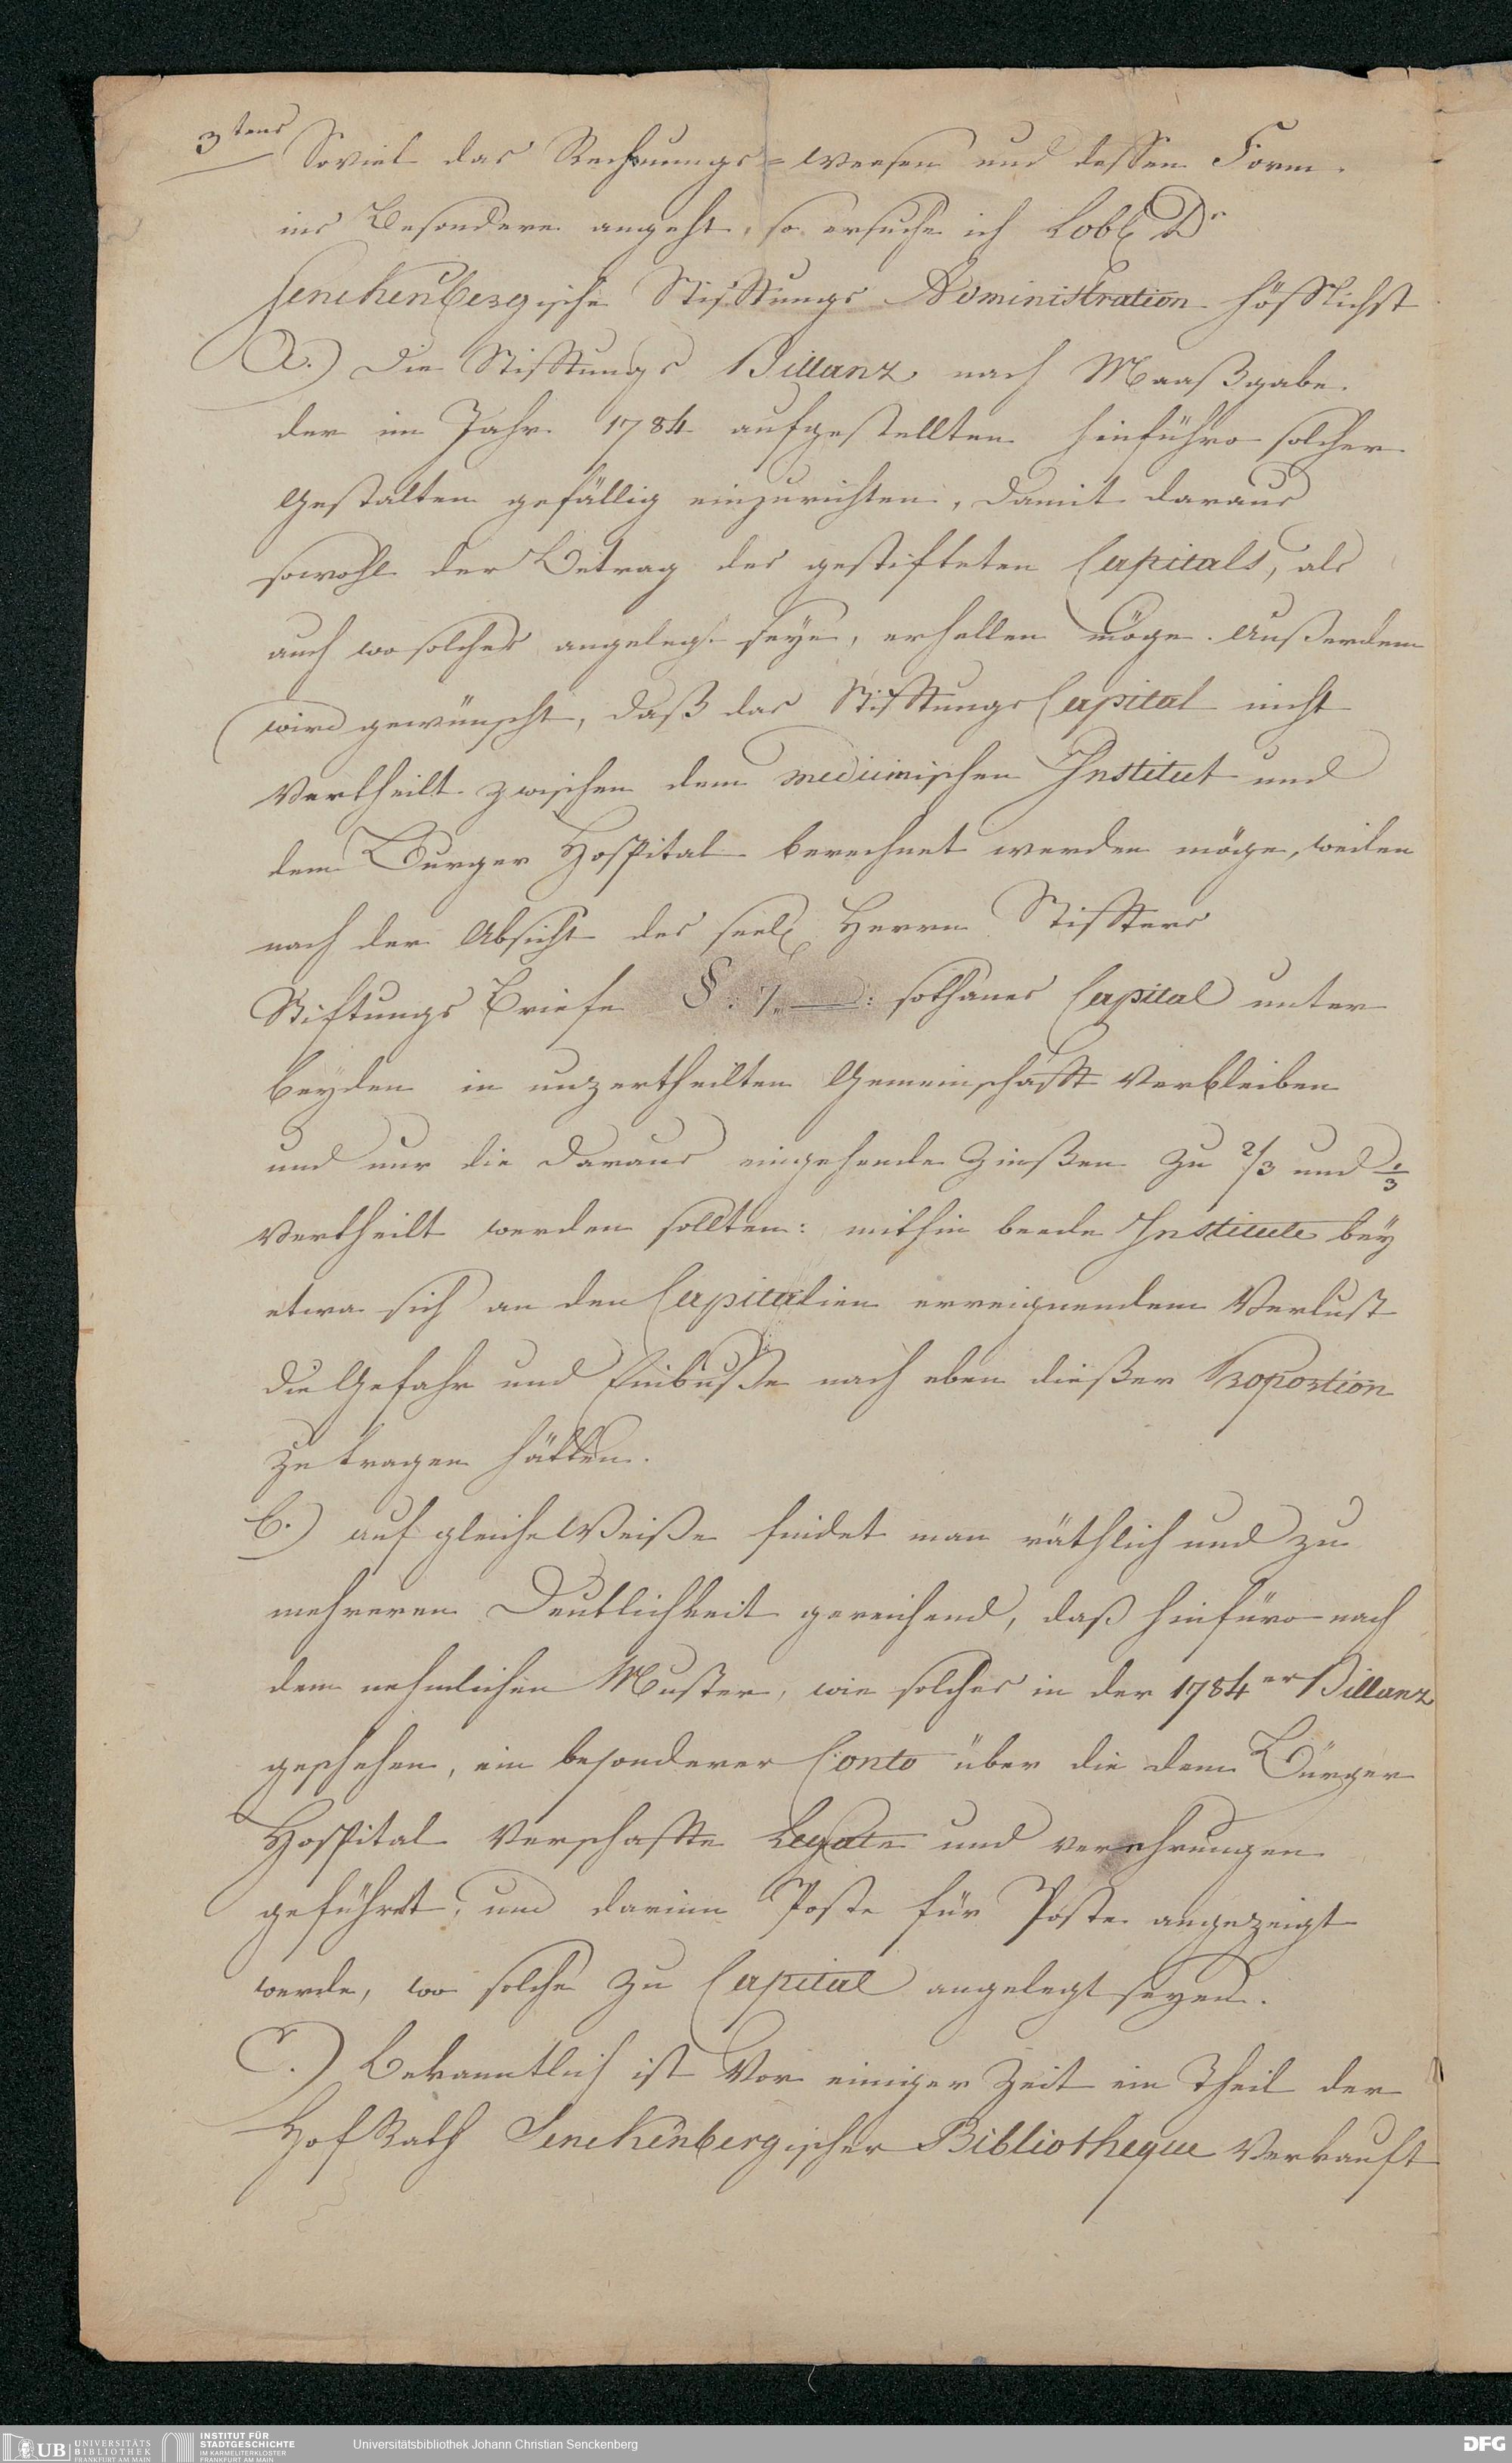 3tens Soviel das Rechnungs=Weesen und dessen Form
ins Besondere angeht, so ersuche ich Lobl. Dr
Senckenbergische Stifftungs Administration höfflichst
A.) Die Stifftungs Billanz nach Maaßgabe
der im Jahr 1784 aufgestellten hinführo solcher
Gestalten gefällig einzurichten, damit daraus
sowohl der Betrag des gestifteten Capitals, als
auch wo solches angelegt seye, erhellen möge. Außerdem
wird gewünscht, daß das Stifftungs Capital nicht
Vertheilt zwischen dem medicinischen Institut und
dem Burger Hospital berechnet werden möge, weilen
nach der Absicht des seel. Herrn Stiffters
Stiftungs Briefe §. 7. —: sothanes Capital unter
beyden in unzertheilten Gemeinschafft Verbleiben
und nur die daraus eingehende Zinßen zu 2/3 und 1/3
Vertheilt werden sollten: mithin beede Institute bey
etwa sich an den Capitalien erreignendem Verlust
die Gefahr und Einbuße nach eben dießer Proportion
zu tragen hätten.
b.) auf gleiche Weiße findet man räthlich und zu
mehreren Deutlichkeit gereichend, daß hinfüro nach
dem nehmlichen Muster, wie solches in der 1784er Billanz
geschehen, ein besonderer Conto über die dem Bürger
Hospital Verschaffte Legate und verehrungen
geführt, und darinn Poste für Poste angezeigt
werde, wo solche zu Capital angelegt seyen.
C.) Bekanntlich ist Vor einiger Zeit ein Theil der
Hof Rath Senckenbergischer Bibliotheque Verkauft
UB UNIVERSITÄTS BIBLIOTHEK FRANKFURT AM MAIN
INSTITUT FÜR STADTGESCHICHTE IM KARMELITERKLOSTER FRANKFURT AM MAIN
Universitätsbibliothek Johann Christian Senckenberg
DFG